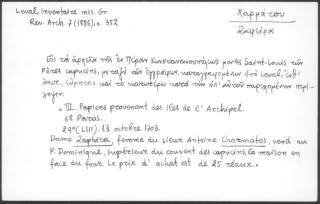 Laval, Inventaire mss. Gr.
Rev. Arch. 7 (1886), σ. 352
Χαρμάτου
Σαφείρα
Ἐκ τὰ ἀρχεῖα τῆς ἐν Πέραν Κωνσταντινουπόλεως μονῆς Saint-Louis τῶν
Pères capucins, μεταξὺ τῶν ἐγγράφων, καταγραφομένων ὑπὸ Laval,
καὶ τὸ κατωτέρω κατὰ τὴν ὑπ' αὐτοῦ παρεχομένην περί-
ληψιν:
"III. Papiers provenant des îles de l'Archipel.
6º Paros.
29º (LIII). 13 octobre 1703.
Dame Zaphira, femme du sieur Antoine Charmatos, vend au
P. Dominique, supérieur du couvent des capucins, la maison en
face du four. Le prix d'achat est de 25 réaux.